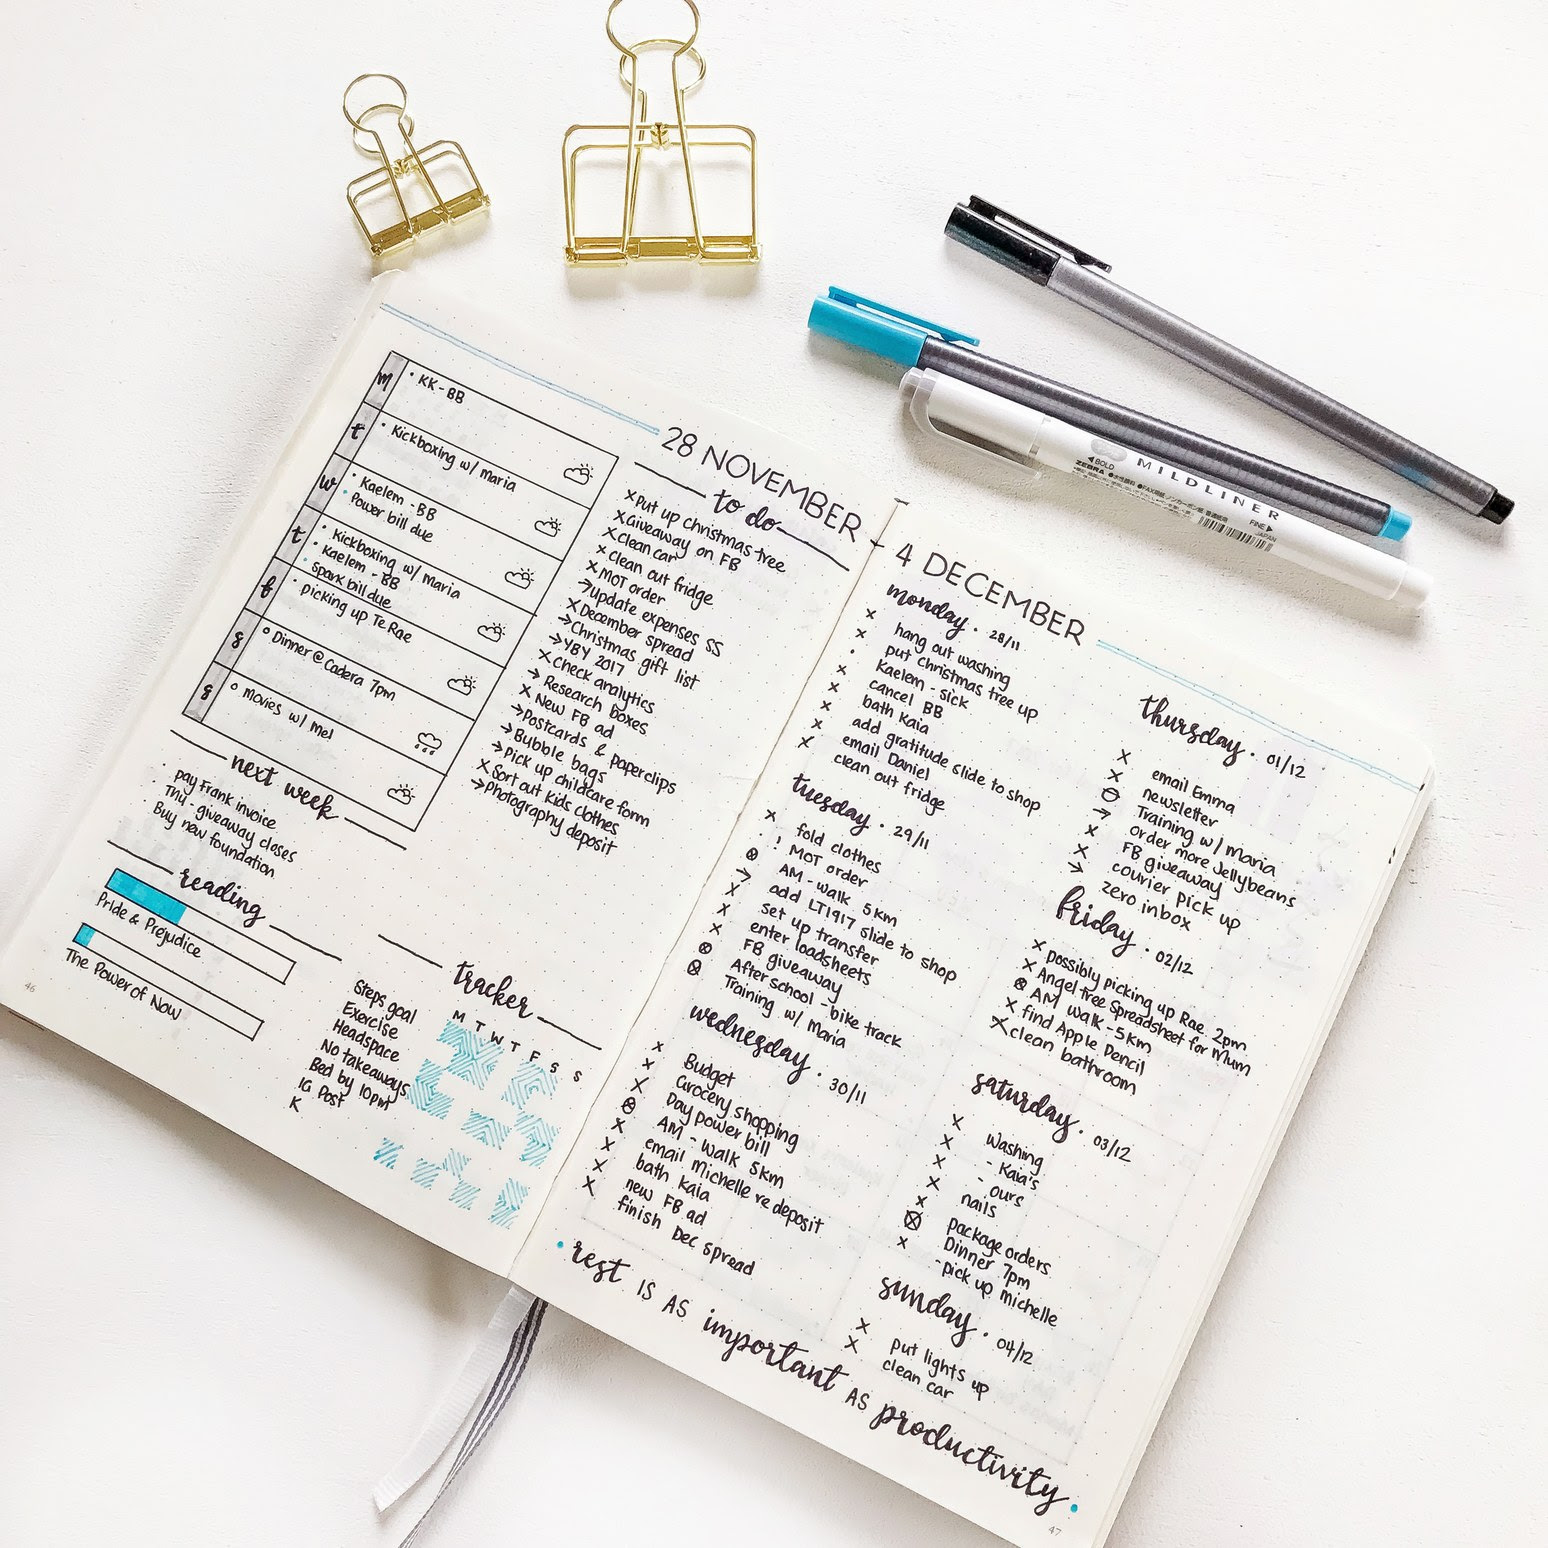 28 NOVEMBER
m
• KK - BB
t
• Kickboxing w/ maria
w
• Kaelem - BB
• Power bill due
t
• Kickboxing w/ maria
• Kaelem - BB
• Spark bill due
f
• picking up Te Rae
s
○ Dinner @ Cadera 7pm
s
○ movies w/ me!
next week
· pay Frank invoice
· Thu - giveaway closes
· Buy new foundation
reading
Pride & Prejudice
The Power of Now
46
to do
× Put up christmas tree
× Giveaway on FB
× Clean car
× Clean out fridge
× MOT order
→ update expenses SS
× December spread
→ Christmas gift list
→ YBY 2017
× Check analytics
→ Research boxes
× New FB ad
→ Postcards & paperclips
→ Bubble bags
→ Pick up childcare form
× Sort out kids clothes
→ Photography deposit
tracker
M T W T F S S
Steps goal
Exercise
Headspace
No takeaways
Bed by 10pm
IG Post
K
- 4 DECEMBER
monday · 28/11
× hang out washing
× put christmas tree up
· Kaelem - sick
× cancel BB
× bath Kaia
× add gratitude slide to shop
× email Daniel
× clean out fridge
tuesday · 29/11
× fold clothes
· ! MOT order
⊗ AM - walk 5km
→ add LT1917 slide to shop
× set up transfer
× enter loadsheets
× FB giveaway
⊗ After school - bike track
⊗ Training w/ Maria
wednesday · 30/11
× Budget
× Grocery shopping
× Day power bill
⊗ AM - walk 5km
× email Michelle re deposit
× bath Kaia
× new FB ad
× finish Dec spread
thursday · 01/12
× email Emma
× newsletter
⊖ Training w/ Maria
→ order more Jellybeans
× FB giveaway
× courier pick up
→ zero inbox
friday · 02/12
× possibly picking up Rae 2pm
× Angel tree Spreadsheet for Mum
⊗ AM walk - 5km
× find Apple Pencil
× clean bathroom
saturday · 03/12
× Washing
× - Kaia's
× - ours
× nails
× package orders
⊗ Dinner 7pm
× - pick up michelle
sunday · 04/12
× put lights up
× clean car
• rest IS AS important AS productivity •
47
◀BOLD
ZEBRA
MILDLINER
FINE▶
JAPAN